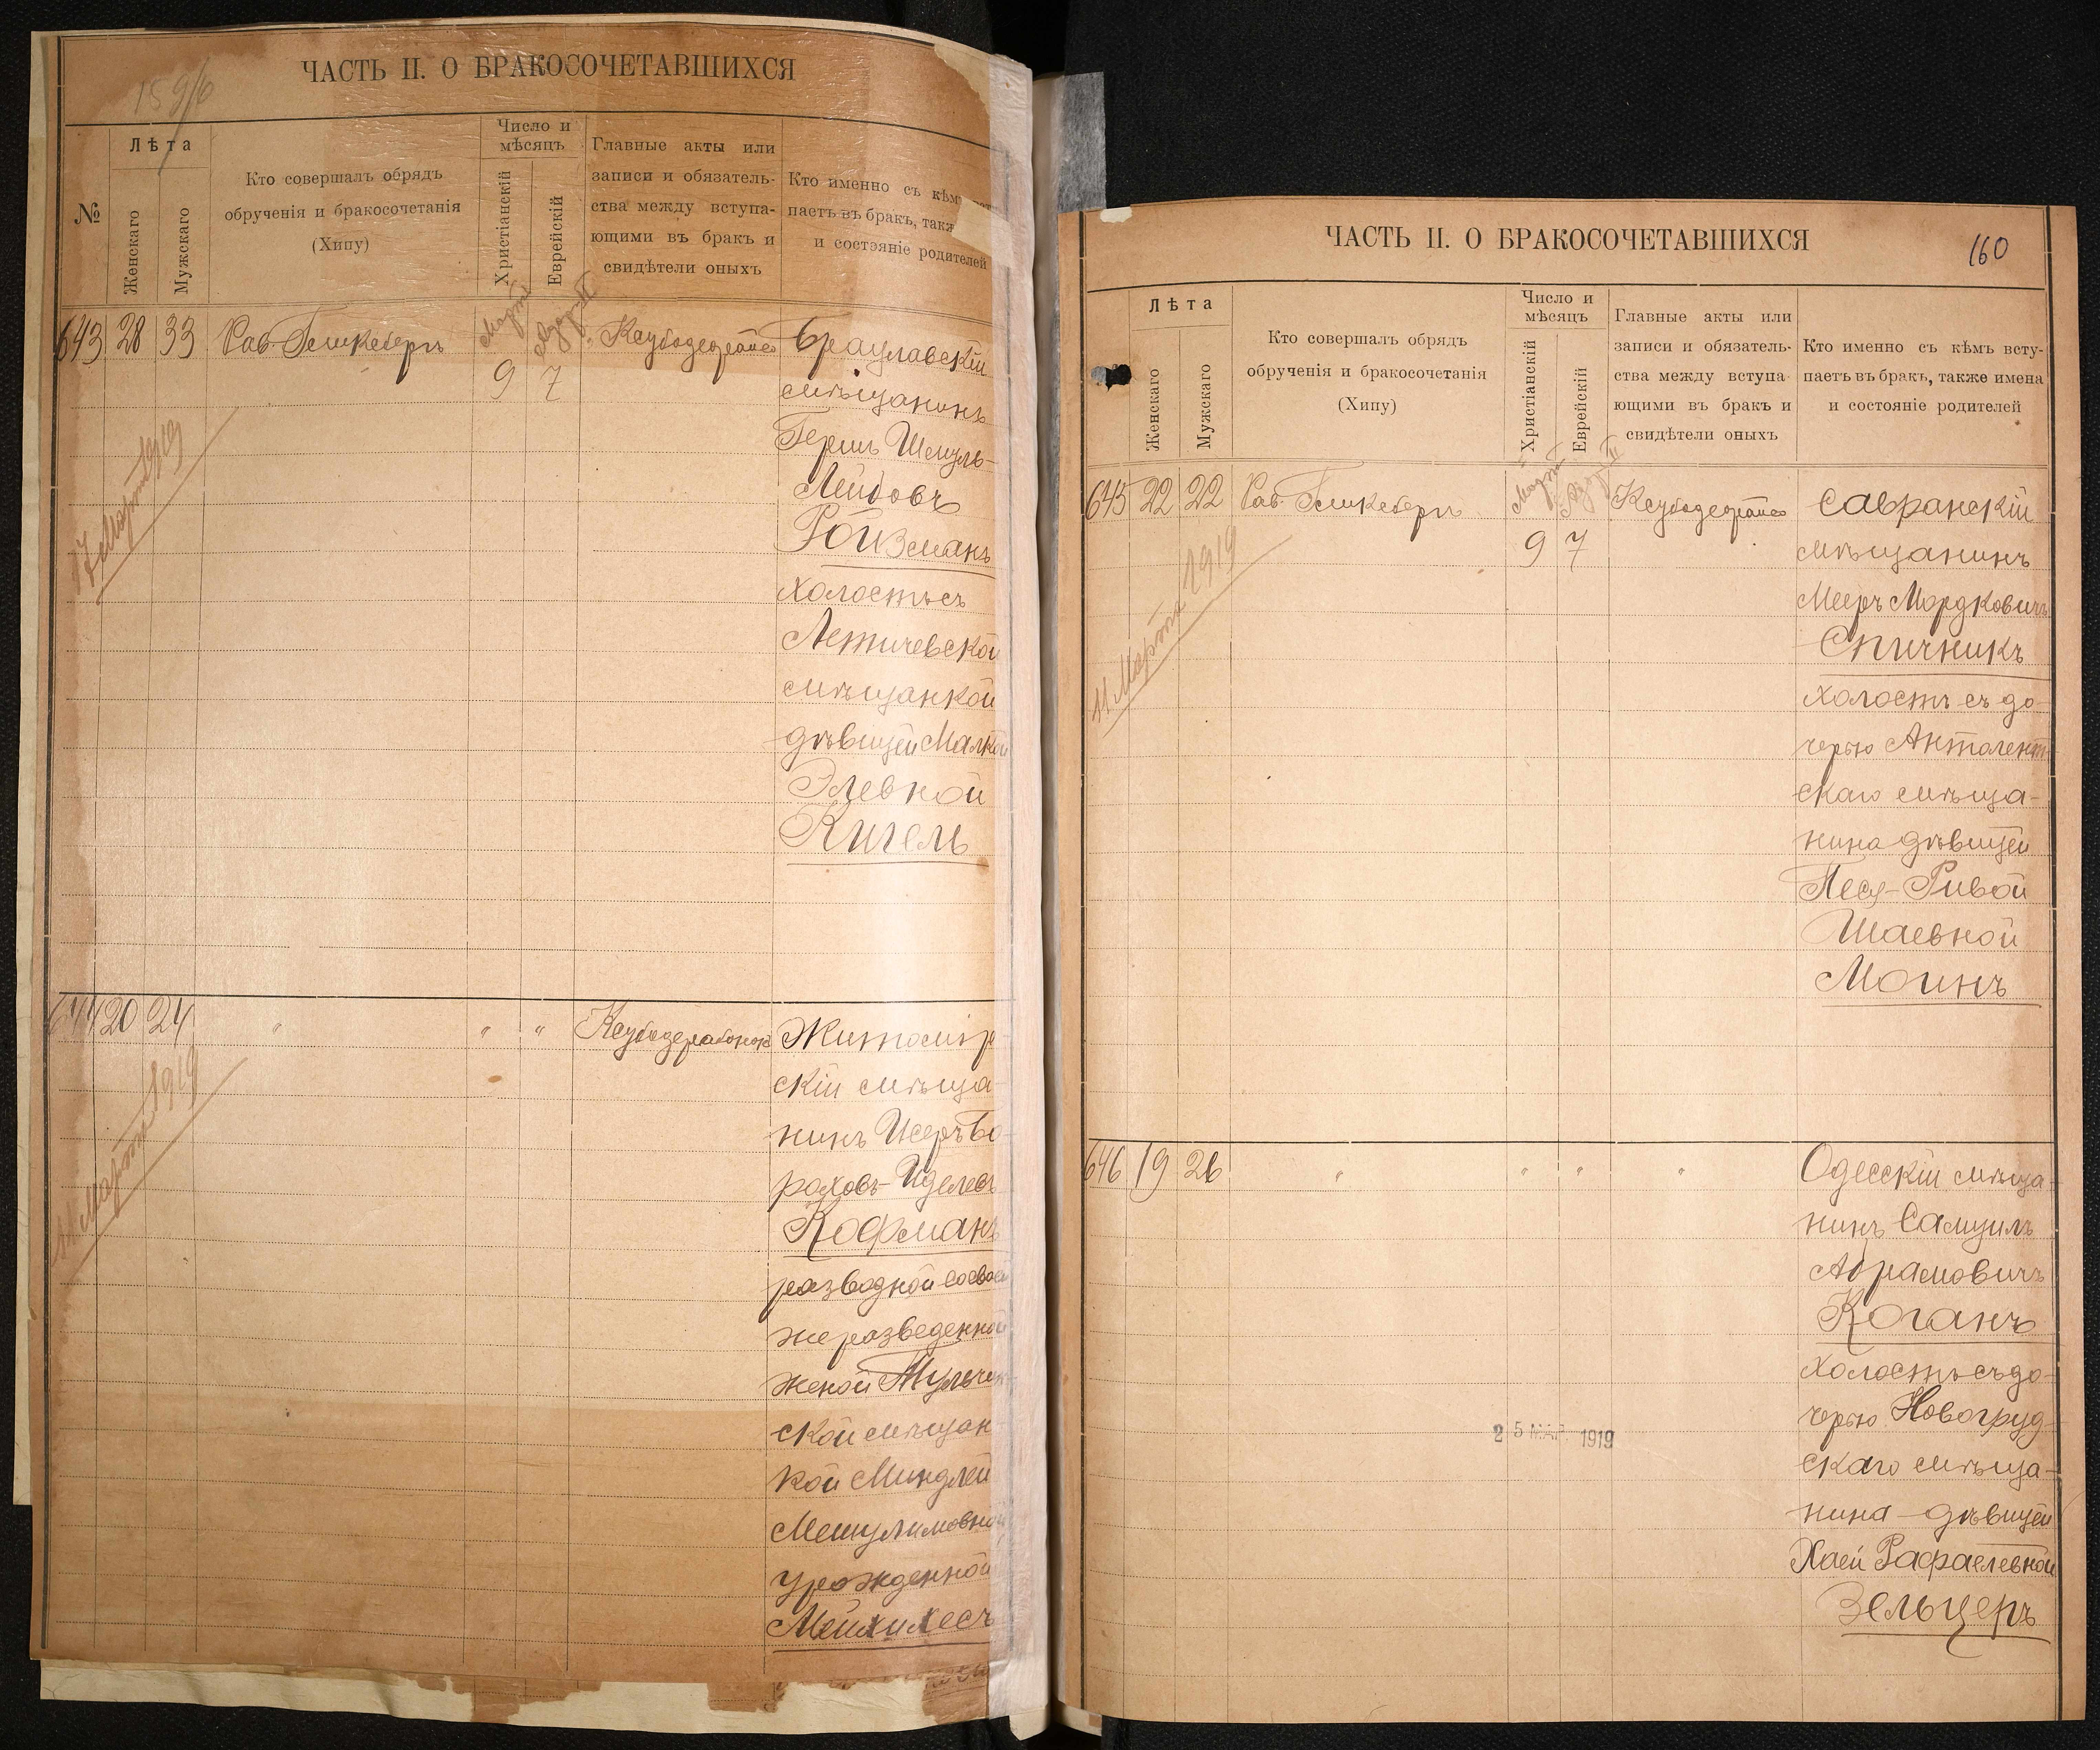 ЧАСТЬ II. О БРАКОСОЧЕТАВШИХСЯ
159/б
№
Лѣта
Женскаго
Мужскаго
Кто совершалъ обрядъ
обрученія и бракосочетанія
(Хипу)
Число и
мѣсяцъ
Христіанскій
Еврейскій
Главные акты или
записи и обязатель-
ства между вступа-
ющими въ бракъ и
свидѣтели оныхъ
Кто именно съ кѣмъ
паетъ въ бракъ, такж
и состояніе родителей
643 28 33 Рав. Марта
9 7
Брацлавскій
мѣщанинъ
Гершъ Шмуль-
Лейбовъ
Ройзманъ
холостъ съ
Летичевской
мѣщанкой
дѣвицей Малкой
Элевной
Кигель
17 Марта 1919
644 20 24 " " "
Житомір
скій мѣща-
нинъ Исеръ Бо-
роховъ-Иделевъ
Кофманъ
разводной со своей
же разведенной
женой Тульчин-
ской мѣщан-
кой Миндлей
Мешулимовной
урожденной
Мейлихесъ
11 Марта 1919
ЧАСТЬ II. О БРАКОСОЧЕТАВШИХСЯ
160
Лѣта
Женскаго
Мужскаго
Кто совершалъ обрядъ
обрученія и бракосочетанія
(Хипу)
Число и
мѣсяцъ
Христіанскій
Еврейскій
Главные акты или
записи и обязатель-
ства между вступа-
ющими въ бракъ и
свидѣтели оныхъ
Кто именно съ кѣмъ всту-
паетъ въ бракъ, также имена
и состояніе родителей
645 22 22 Рав. Марта
9 7
Савранскій
мѣщанинъ
Мееръ Мордковичъ
Спичникъ
холостъ съ до-
черью
скаго мѣща-
нина дѣвицей
Песя-Ривой
Шаевной
Могинъ
11 Марта 1919
646 19 26 " " " "
Одесскій мѣща-
нинъ Самуилъ
Абрамовичъ
Коганъ
холостъ съ до-
черью Новогруд-
скаго мѣща-
нина - дѣвицей
Хаей Рафаелевной
Зельцеръ
25 МАР. 1919